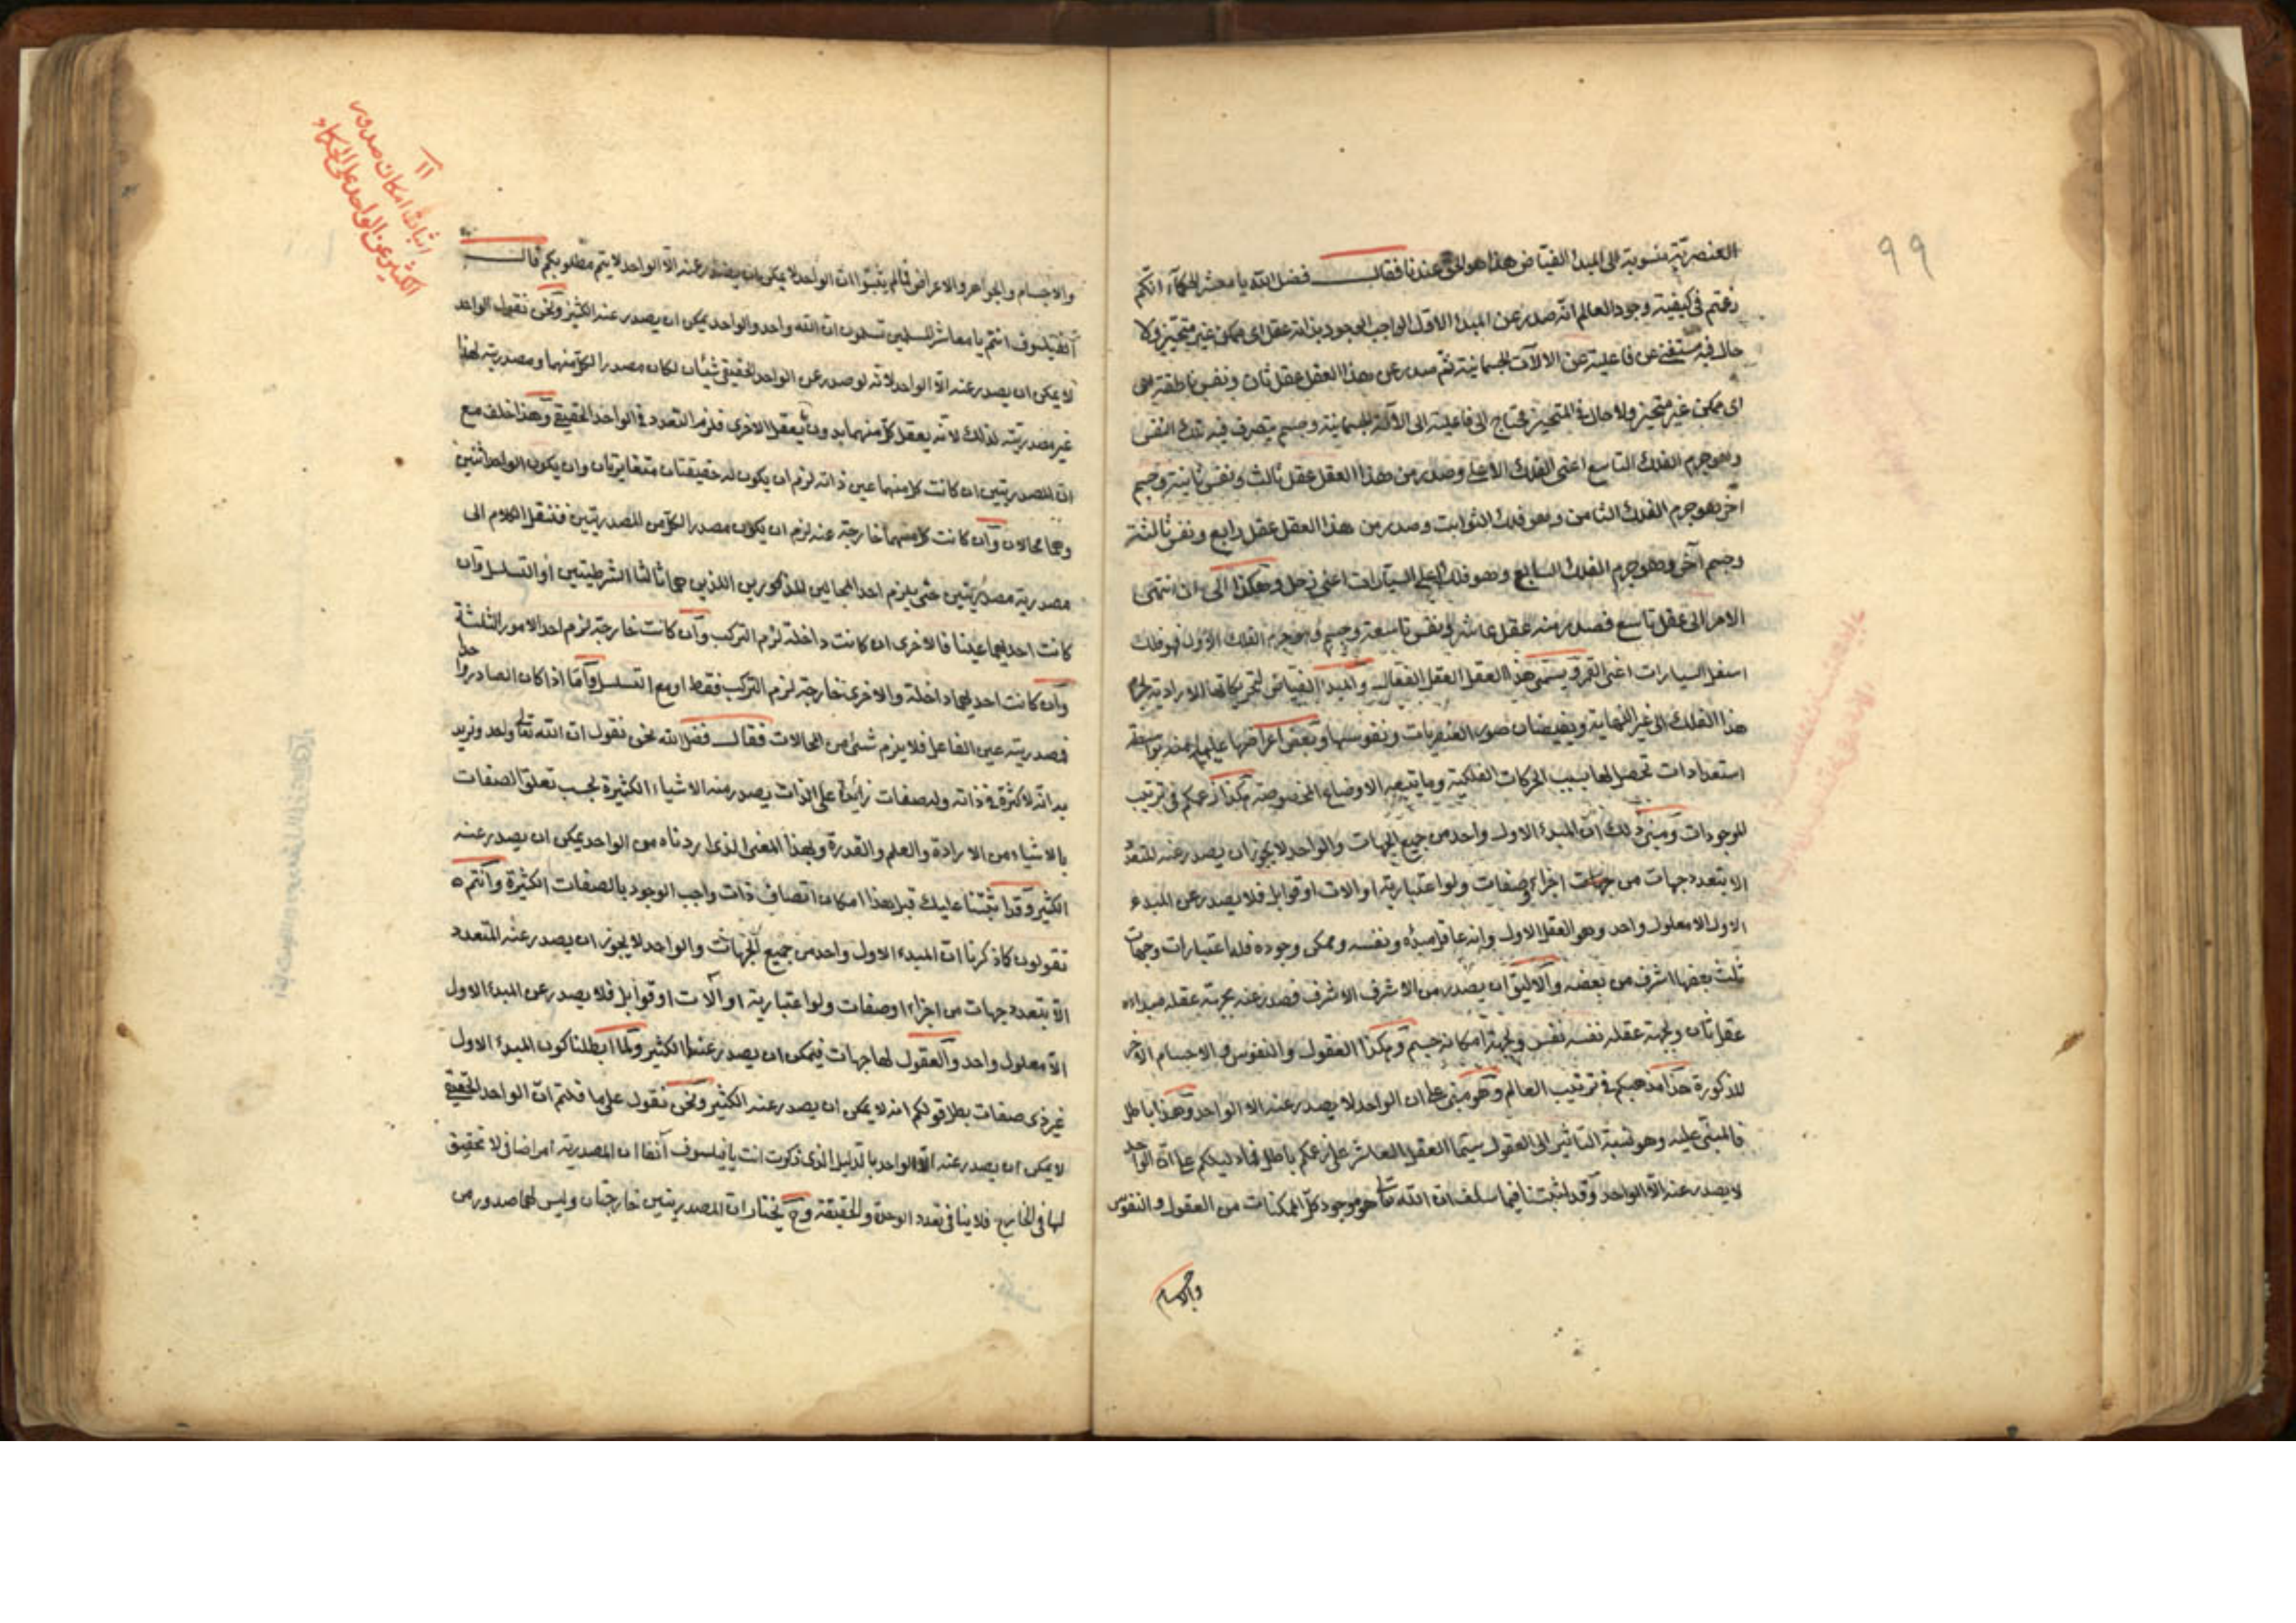 ٩٩
العنصرية منسوبة الى المبدأ الفياض هذا هو الحق عندنا فقال فضل الله يا معشر الحكماء انكم
زعمتم فى كيفية وجود العالم انه صدر عن المبدء الاول الواجب الوجود بذاته عقل اى ممكن غير متحيز ولا
حال فيه مستغنى عن فاعليته عن الالات الجسمانية ثم صدر عن هذا العقل عقل ثان ونفس ناطقة هى
اى ممكن غير متحيز ولا حال فى المتحيز محتاج الى فاعليته الى الآلة الجسمانية وجسم يتصرف فيه تلك النفس
وهو جرم الفلك التاسع اعنى الفلك الاعلى وصدر من هذا العقل عقل ثالث ونفس ثانية وجسم
آخر هو جرم الفلك الثامن وهو فلك الثوابت وصدر من هذا العقل عقل رابع ونفس ثالثة
وجسم آخر وهو جرم الفلك السابع وهو فلك اعلى السيارات اعنى زحل وهكذا الى ان انتهى
الامر الى عقل تاسع فصدر منه عقل عاشر ونفس تاسعة وجسم وهو جرم الفلك الاول فهو فلك
اسفل السيارات اعنى القمر ويسمى هذا العقل العقل الفعال والمبدأ الفياض لتحريكاتها الارادية لجرم
هذا الفلك الى غير النهاية وبفيضان صور العنصريات ونفوسها وبعض اعراضها عليها منه بواسطة
استعدادات تحصل لها بسبب الحركات الفلكية وما يتبعه الاوضاع المخصوصة هكذا زعمكم فى ترتيب
الموجودات ومبنى ذلك ان المبدء الاول واحد من جميع الجهات والواحد لا يجوز ان يصدر عنه المتعدد
الا بتعدد جهات من جهات اجزاء وصفات ولو اعتبارية او الات او قوابل فلا يصدر عن المبدء
الاول الا معلول واحد وهو العقل الاول وانه عاقل مبدؤه ونفسه وممكن وجوده فله اعتبارات وجهات
ثلث بعضها اشرف من بعضه والاليق ان يصدر من الاشرف الاشرف فصدر عنه بجهة عقله مبداءه
عقل ثان وبجهة عقله نفسه نفس وبجهة امكانه جسم وهكذا العقول والنفوس والاجسام الاخر
المذكورة هذا مذهبكم فى ترتيب العالم وهو مبنى على ان الواحد لا يصدر عنه الا الواحد وهذا باطل
فالمبنى عليه وهو نسبة التاثير الى العقول سيما العقل العاشر على زعمكم باطل فما دليلكم على ان الواحد
لا يصدر عنه الا الواحد وقد اثبتنا فيما سلف ان الله تعالى هو موجود كل الممكنات من العقول والنفوس
والاجسام
١١
اثبات امكان صدور
الكثير عن الواحد على الحكماء
والاجسام والجواهر والاعراض فما لم يثبتوا ان الواحد لا يمكن ان يصدر عنه الا الواحد لا يتم مطلوبكم قال
الفيلسوف انتم يا معاشر المسلمين تسلمون ان الله واحد والواحد يمكن ان يصدر عنه الكثير ونحن نقول الواحد
لا يمكن ان يصدر عنه الا الواحد لانه لو صدر عن الواحد الحقيقى شيئان لكان مصدرا لكل منهما ومصدريته لهذا
غير مصدريته لذلك لانه يعقل كل منهما بدون تعقل الاخرى فلزم التعدد فى الواحد الحقيقى وهذا خلف مع
ان المصدريتين ان كانت كل منهما عين ذاته لزم ان يكون له حقيقتان متغايرتان وان يكون الواحد اثنين
وهما محالان وان كانت كل منهما خارجة عنه لزم ان يكون مصدرا لكل من المصدريتين فننقل الكلام الى
مصدرية مصدريتين حتى يلزم احد المحالين المذكورين اللذين هما تاليا الشرطيتين او التسلسل وان
كانت احديهما عينا فالاخرى ان كانت داخلة لزم التركيب وان كانت خارجة لزم احد الامور الثلثة
وان كانت احديهما داخلة والاخرى خارجة لزم التركيب فقط او مع التسلسل واما اذا كان الصادر واحدا
فصدريته عين الفاعل فلا يلزم شئ من المحالات فقال فضل الله نحن نقول ان الله تعالى واحد ونريد
به انه لا كثرة فى ذاته وله صفات زائدة على الذات يصدر منه الاشياء الكثيرة بحسب تعلق الصفات
بالاشياء من الارادة والعلم والقدرة وبهذا المعنى الذى اردناه من الواحد يمكن ان يصدر عنه
الكثير وقد اثبتنا عليك قبل هذا امكان اتصاف ذات واجب الوجود بالصفات الكثيرة وانتم
تقولون كما ذكرنا ان المبدء الاول واحد من جميع الجهات والواحد لا يجوز ان يصدر عنه المتعدد
الا بتعدد جهات من اجزاء او صفات ولو اعتبارية او آلات او قوابل فلا يصدر عن المبدء الاول
الا معلول واحد والعقول لها جهات فيمكن ان يصدر عنها الكثير ولما ابطلنا كون المبدء الاول
غير ذى صفات بطل قولكم انه لا يمكن ان يصدر عنه الكثير ونحن نقول على ما قلتم ان الواحد الحقيقى
لا يمكن ان يصدر عنه الا الواحد بالدليل الذى ذكرت انت يا فيلسوف آنفا ان المصدرية امر اضافى لا تحقيق
لها فى الخارج فلا ينافى تعدد الوحدة والحقيقة وح يختار ان المصدريتين خارجتان وليس لهما صدور من